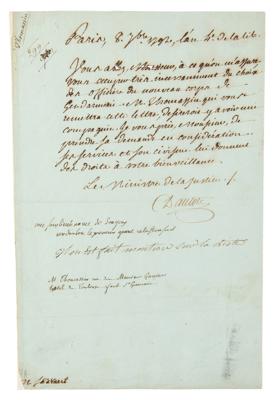 Paris, 2 7bre 1792, l'an 4e de la lib.
Vous allez, Monsieur, à ce qu'on m'assure
vous occuper très incessamment du choix
des officiers du nouveau corps de
Gendarmerie. M. Thomassin qui vous
remettra cette lettre, desireroit y avoir une
compagnie. Je vous prie, Monsieur, de
prendre sa demande en considération.
Ses services et son civisme lui donnent
des droits à votre bienveillance.
Le Ministre de la Justice /.
Danton
fait mention sur la liste
M. Thomassin rue du
hotel de Toulouse St Germain
M. Servant